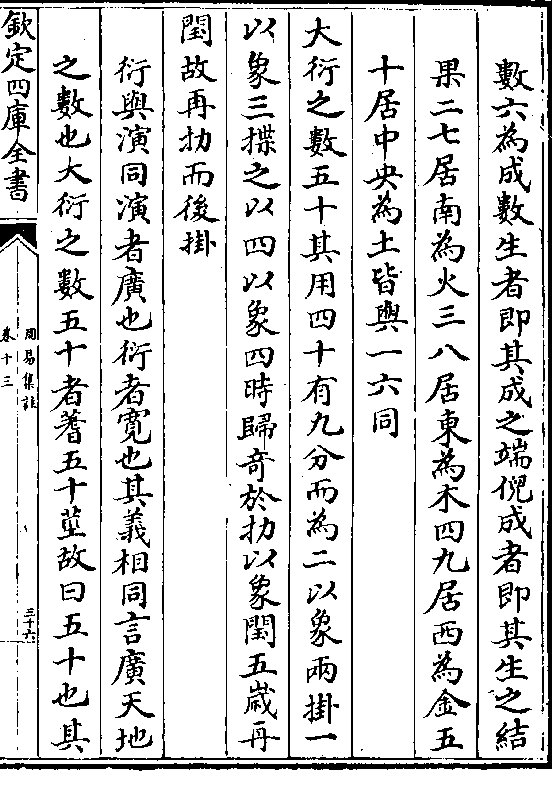 數六為成數生者即其成之端倪成者即其生之結
果二七居南為火三八居東為木四九居西為金五
十居中央為土皆與一六同
大衍之數五十其用四十有九分而為二以象兩掛一
以象三揲之以四以象四時歸奇於扐以象閏五歲再
閏故再扐而後掛
衍與演同演者廣也衍者寬也其義相同言廣天地
之數也大衍之數五十者蓍五十莖故曰五十也其
欽定四庫全書
周易集註
卷十三
三十六